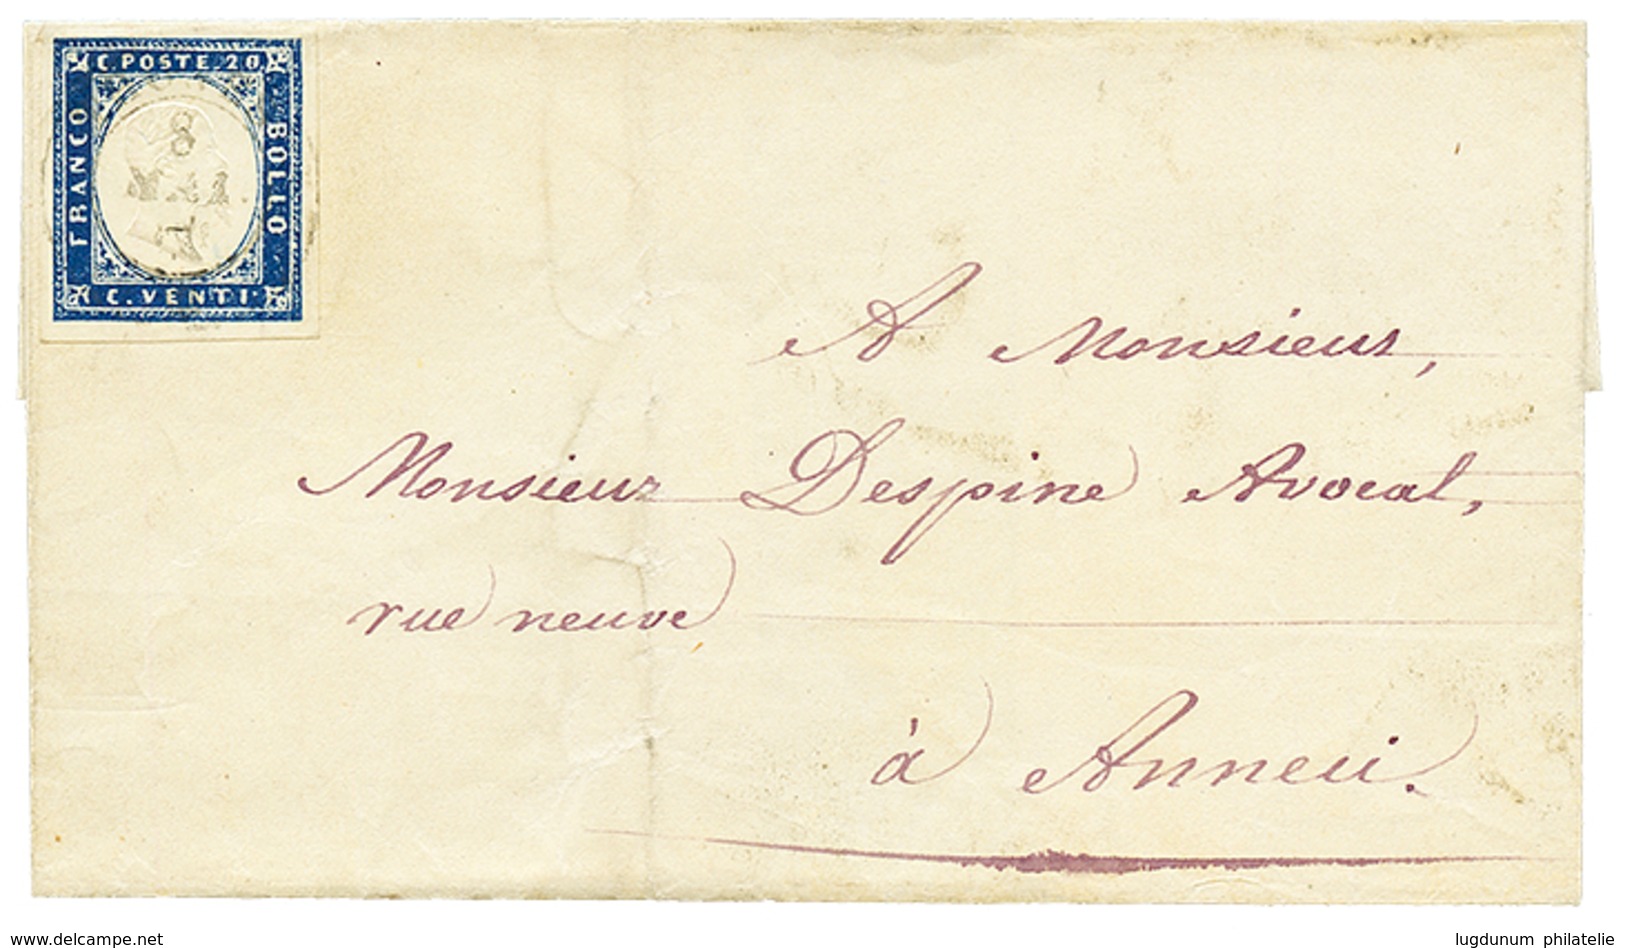 C. POSTE. 20
FRANCO
BOLLO
C. VENTI.
8
MAI
A Monsieur,
Monsieur Despine Avocat,
rue neuve
à Anneci.
www.delcampe.net
lugdunum philatelie